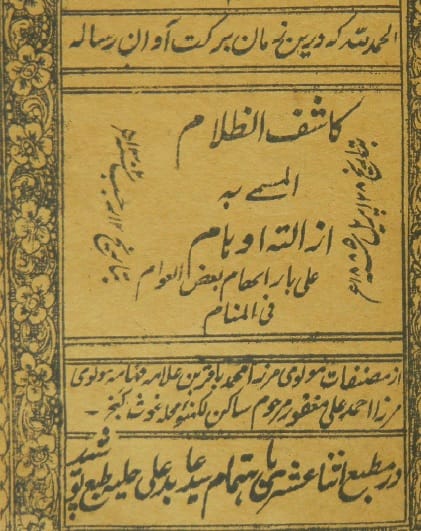 الحمد للہ کہ درین زمان برکت آوان رسالہ
کاشف الظلام
المسمے بہ
ازالتہ اوہام
علی بار الہام بعض العوام
فی المنام
بتاریخ ۲۸ اپریل ۱۸۸۵ء
بتاریخ ۱۲ رجب
از مصنفات مولوی مرزا محمد باقر بن علامہ فہامہ مولوی
مرزا احمد علی مغفور مرحوم ساکن لکنہؤ محلہ غوث گنج
در مطبع اثنا عشری باہتمام سید عابد علی حلیہ طبع پوشید